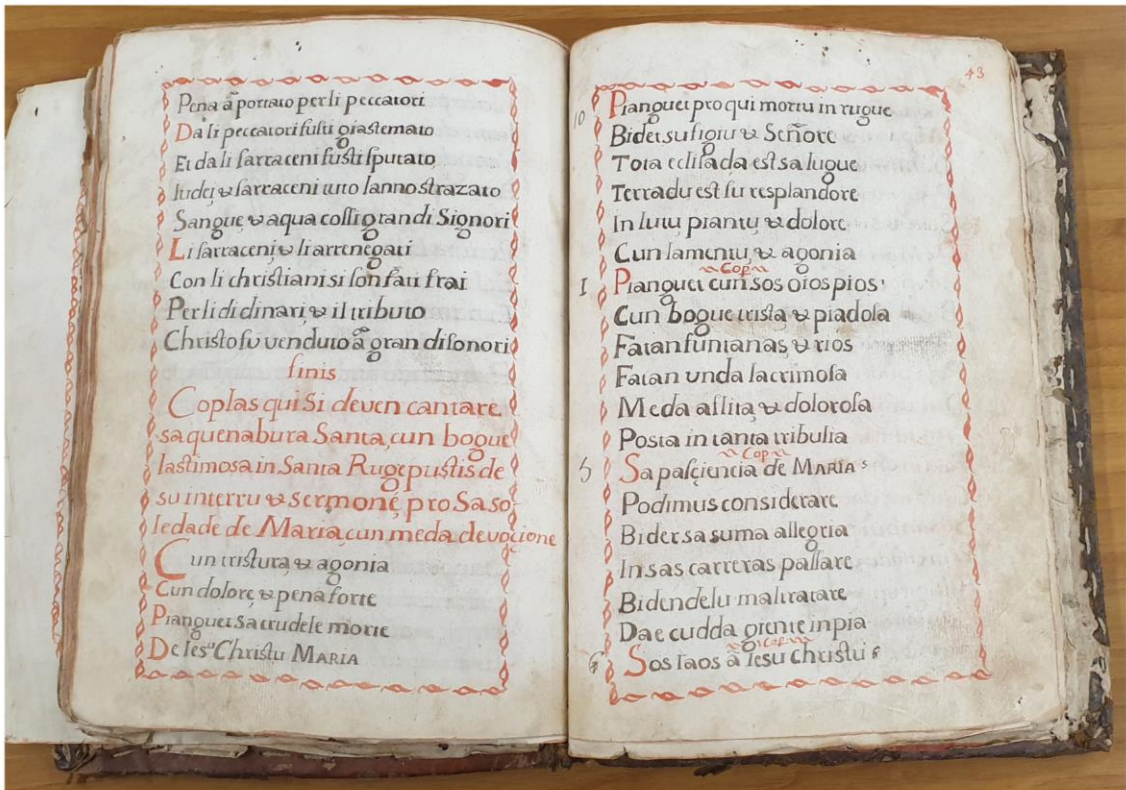 Pena ã portato per li peccatori
Da li peccatori fusti giastemato
Et da li sarraceni fusti sputato
Iudei & sarraceni unto lanno strazato
Sangue & aqua cossi grandi Signori
Li sarraceni & li arrenegati
Con li christiani si son fati frai
Per li didinari & il tributo
Christo fu venduto ã gran disonori
finis
Coplas qui Si deven cantare
sa quenabura Santa, cun bogue
lastimosa in Santa Ruge pustis de
su interru & sermone pro Sa so
ledade de Maria cun meda devocione
Cun tristura & agonia
Cun dolore & pena forte
Pianguei sa crudele morte
De Iesu Christu MARIA
43
10
Pianguei pro qui mortu in rugue
Bidet su figiu & Señore
Tota eclisada est sa lugue
Terradu est su resplandore
In lutu piantu & dolore
Cun lamentu & agonia
Cop
I
Pianguei cun sos oios pios
Cun bogue trista & piadosa
Fatan funtanas & rios
Fatan unda lacrimosa
Meda aflita & dolorosa
Posta in tanta tribulia
Cop
5
Sa pasçiencia de MARIA
Podimus considerare
Bider sa suma allegria
In sas carreras passare
Bidendelu maltratare
Dae cudda giente inpia
Cop
6
Sos laos ã Iesu christu